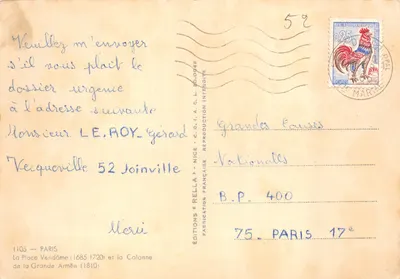 52
Veuillez m'envoyer
s'il vous plait le
dossier urgence
à l'adresse suivante
Monsieur LE.ROY-Gérard
Vecqueville 52 Joinville
Merci
1105 — PARIS
La Place Vendôme (1685-1720) et la Colonne
de la Grande Armée (1810)
EDITIONS "RELLA" - NICE
EXÉCUTION FRANÇAISE - REPRODUCTION INTERDITE
Grandes Causes
Nationales
B.P. 400
75. PARIS 17e